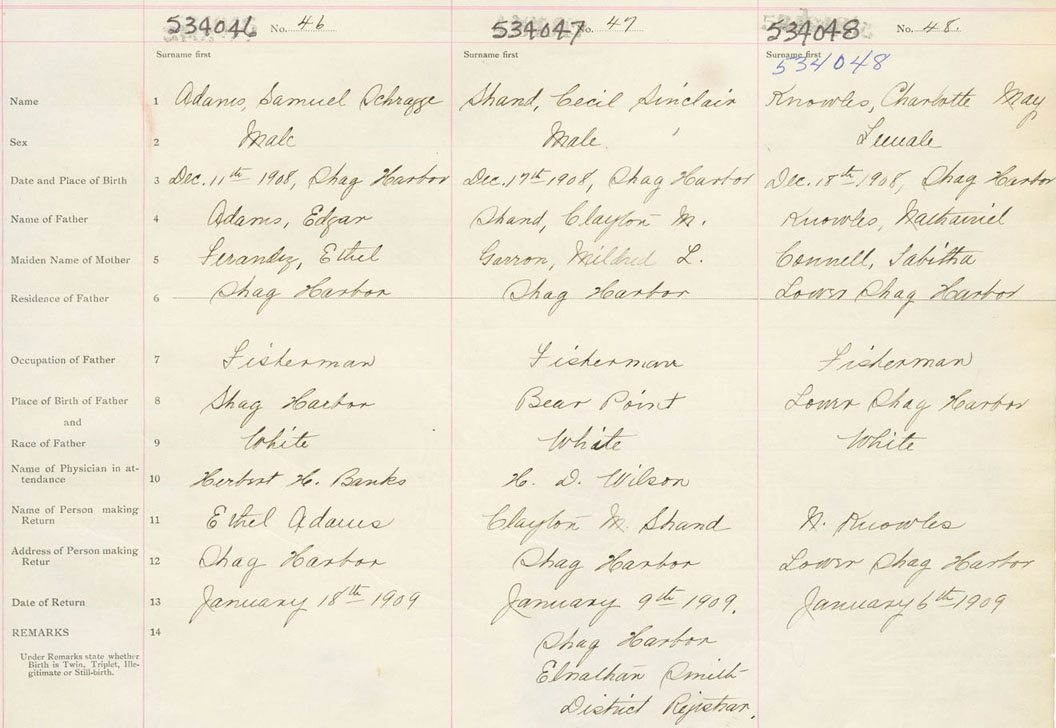 534046 No. 46 534047 No. 47 534048 No. 48.
Surname first Surname first Surname first
534048
Name 1 Adams, Samuel Schragge Shand, Cecil Sinclair Knowles, Charlotte May
Sex 2 Male Male Female
Date and Place of Birth 3 Dec. 11th 1908, Shag Harbor Dec. 17th 1908, Shag Harbor Dec. 18th 1908, Shag Harbor
Name of Father 4 Adams, Edgar Shand, Clayton M. Knowles, Nathaniel
Maiden Name of Mother 5 Ethel Garron, Mildred L. Connell, Tabitha
Residence of Father 6 Shag Harbor Shag Harbor Lower Shag Harbor
Occupation of Father 7 Fisherman Fisherman Fisherman
Place of Birth of Father 8 Shag Harbor Bear Point Lower Shag Harbor
and
Race of Father 9 White White White
Name of Physician in at-
tendance 10 Herbert H. Banks H. D. Wilson
Name of Person making
Return 11 Ethel Adams Clayton M. Shand N. Knowles
Address of Person making
Retur 12 Shag Harbor Shag Harbor Lower Shag Harbor
Date of Return 13 January 18th 1909 January 9th 1909. January 6th 1909
REMARKS 14 Shag Harbor
Under Remarks state whether
Birth is Twin, Triplet, Ille-
gitimate or Still-birth.
Elnathan Smith
District Registrar.